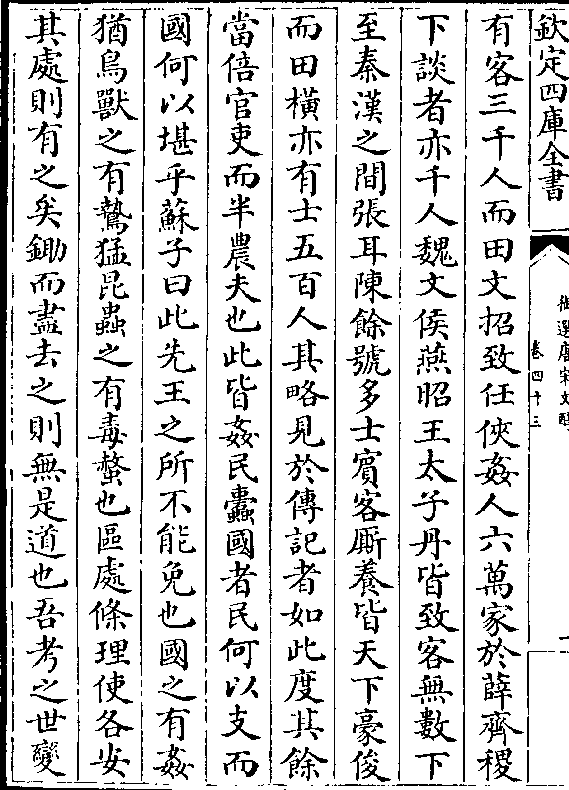 欽定四庫全書
御選唐宋文醇
卷四十三
有客三千人而田文招致任俠姦人六萬家於薛齊稷
下談者亦千人魏文侯燕昭王太子丹皆致客無數下
至秦漢之間張耳陳餘號多士賓客厮養皆天下豪俊
而田橫亦有士五百人其略見於傳記者如此度其餘
當倍官吏而半農夫也此皆姦民蠹國者民何以支而
國何以堪乎蘇子曰此先王之所不能免也國之有姦
猶鳥獸之有鷙猛昆蟲之有毒螫也區處條理使各安
其處則有之矣鋤而盡去之則無是道也吾考之世變